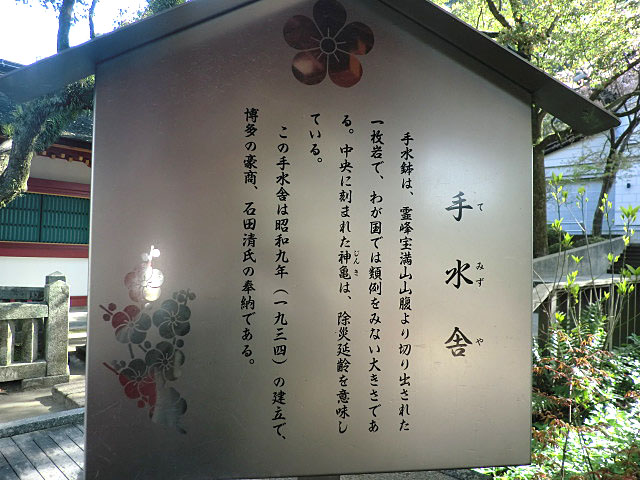 手水舎
て みず や
手水鉢は、霊峰宝満山山腹より切り出された
一枚岩で、わが国では類例をみない大きさであ
る。中央に刻まれた神亀は、除災延齢を意味し
じんき
ている。
この手水舎は昭和九年（一九三四）の建立で、
博多の豪商、石田清氏の奉納である。